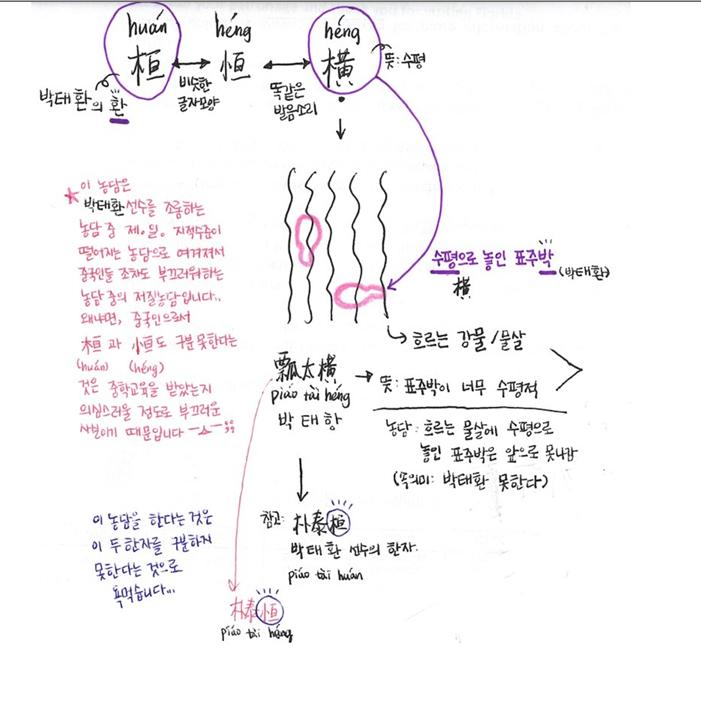 huán héng héng
桓 恒 橫
뜻:수평
박태환의 환
비슷한
글자모양
똑같은
발음소리
이 농담은
박태환선수를 조롱하는
농담 중 제.일. 지적수준이
떨어지는 농담으로 여겨져서
중국인들 조차도 부끄러워하는
농담 중의 저질농담입니다..
왜냐면, 중국인으로서
桓 과 恒도 구분못한다는
(huán) (héng)
것은 중학교육을 받았는지
의심스러울 정도로 부끄러운
사실이기 때문입니다
수평으로 놓인 표주박
(박태환)
橫
흐르는 강물/물살
瓢太橫
piáo tài héng
박태항
뜻: 표주박이 너무 수평적
농담: 흐르는 물살에 수평으로
놓인 표주박은 앞으로 못나감
(속의미: 박태환 못한다)
참고: 朴泰桓
박태환 선수의 한자.
piáo tài huán
이 농담을 한다는 것은
이 두한자를 구분하지
못한다는 것으로
욕먹습니다...
朴泰恒
piáo tài héng